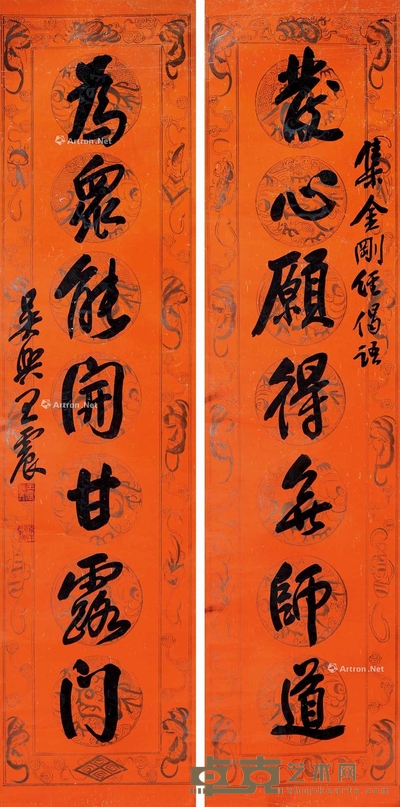 集金剛經偈語
發心願得無師道
為眾能開甘露门
吳興王震
Artron.Net
Artron.Net
Artron.Net
Artron.Net
卓克艺术网